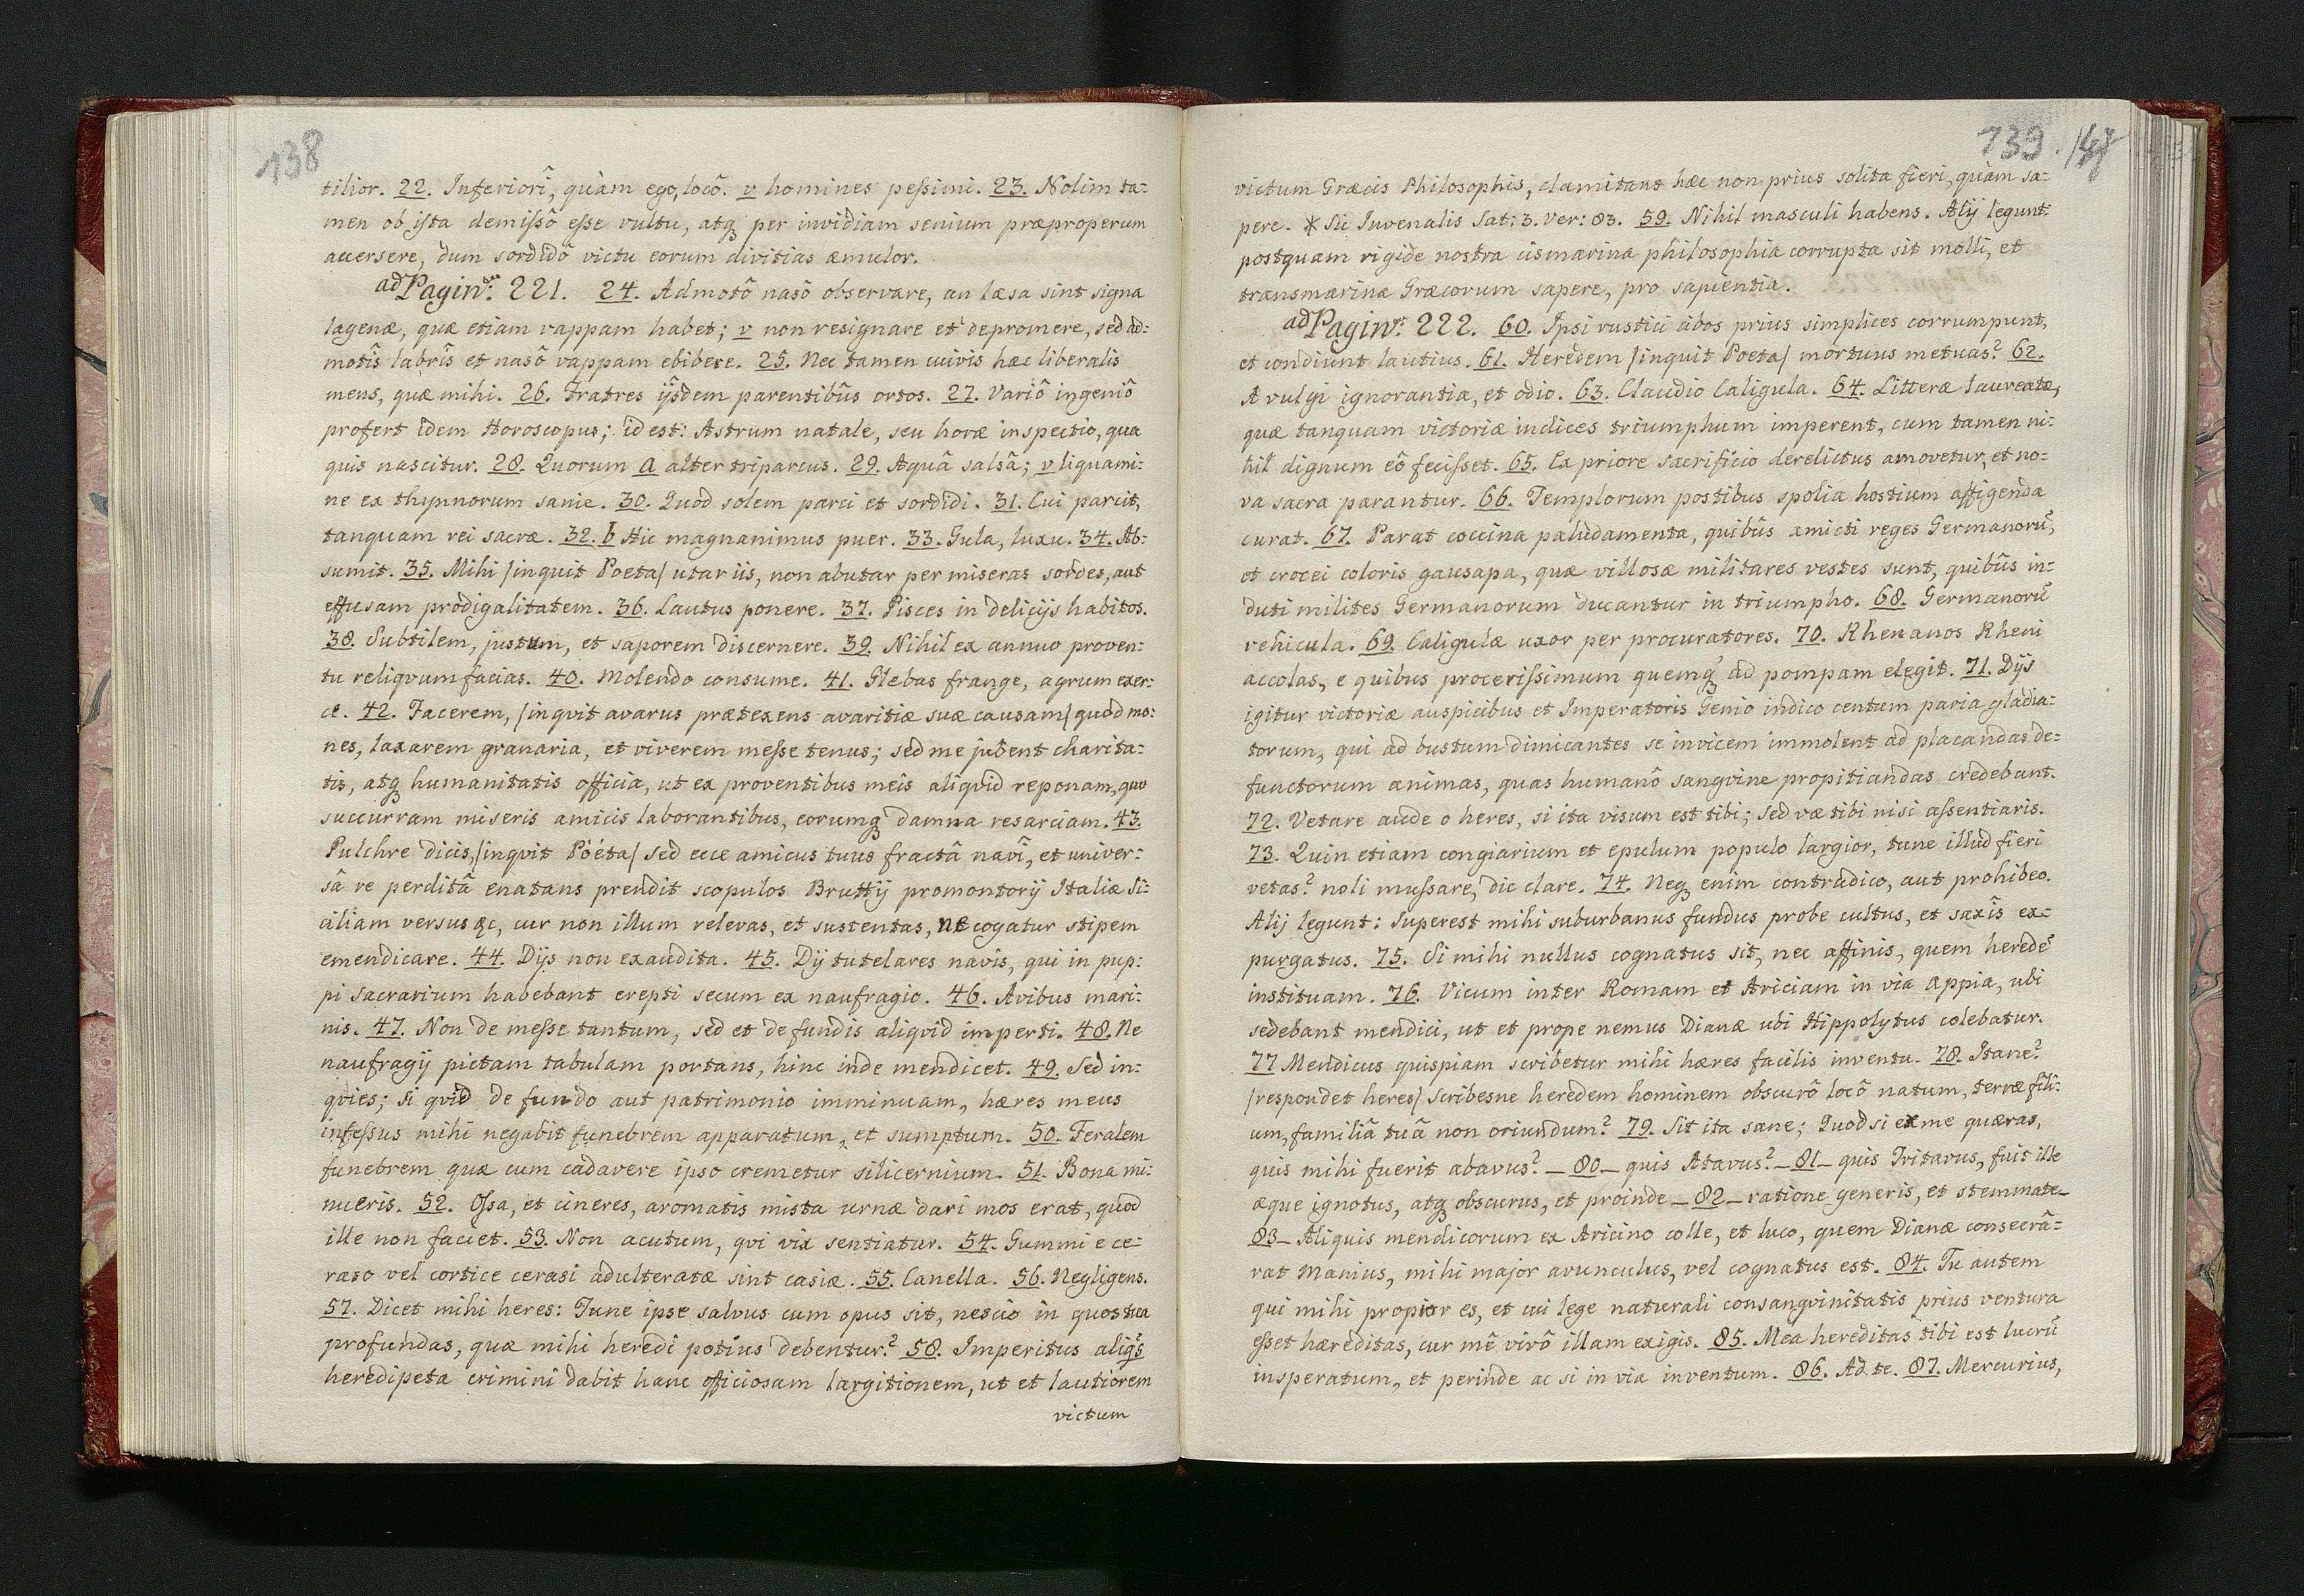 138
tilior. 22. Inferiorî, quàm ego, locô. v homines peſsimi. 23. Nolim ta=
men ob iſta demiſsô eſse vultu, atq́ꝫ per invidiam senium præproperum
accersere, dum sordidô victu eorum divitias æmulor.
ad Pagin: 221. 24. Admotô nasô observare, an læsa sint signa
lagenæ, quæ etiam vappam habet; v non resignare et depromere, sed ad=
motîs labrîs et nasô vappam ebibere. 25. Nec tamen cuivis hæc liberalis
mens, quæ mihi. 26. Fratres ijsdem parentibûs ortos. 27. Variô ingeniô
profert idem Horoscopus; id est: Astrum natale, seu horæ inspectio, qua
quis nascitur. 28. Quorum a alter triparcus. 29. Aquâ salsâ; v liquami=
ne ex thynnorum sanie. 30. Quod solem parci et sordidi. 31. Cui parcit,
tanquam rei sacræ. 32. b Hic magnanimus puer. 33. Gula, luxu. 34. Ab=
sumit. 35. Mihi /inquit Poeta/ utar iis, non abutar per miseras sordes, aut
effusam prodigalitatem. 36. Lautus ponere. 37. Pisces in delicijs habitos.
38. Subtilem, justum, et saporem discernere. 39. Nihil ex annuo proven=
tu reliqvum facias. 40. Molendo consume. 41. Glebas frange, agrum exer=
ce. 42. Facerem, /inqvit avarus prætexens avaritiæ suæ causam/ quod mo=
nes, laxarem granaria, et viverem meſse tenus; sed me jubent charita=
tis, atqꝫ humanitatis officia, ut ex proventibus meis aliqvid reponam, quo
succurram miseris amicis laborantibus, eorumqꝫ damna resarciam. 43.
Pulchre dicis, /inqvit Poéta/ sed ecce amicus tuus fractâ navî, et univer=
sâ re perditâ enatans prendit scopulos Bruttij promontorij Italiæ Si=
ciliam versus &c, cur non illum relevas, et sustentas, ne cogatur stipem
emendicare. 44. Dijs non exaudita. 45. Dij tutelares navis, qui in pup=
pi sacrarium habebant erepti secum ex naufragio. 46. Avibus mari=
nis. 47. Non de meſse tantum, sed et de fundis aliqvid imperti. 48. Ne
naufragij pictam tabulam portans, hinc inde mendicet. 49. Sed in=
qvies; si qvid de fundo aut patrimonio imminuam, hæres meus
infeſsus mihi negabit funebrem apparatum, et sumptum. 50. Feralem
funebrem quæ cum cadavere ipso cremetur silicernium. 51. Bona mi=
nueris. 52. Oſsa, et cineres, aromatis mista urnæ dari mos erat, quod
ille non faciet. 53. Non acutum, qvi vix sentiatur. 54. Gummi e ce=
raso vel cortice cerasi adulteratæ sint casiæ. 55. Canella. 56. Negligens.
57. Dicet mihi heres: Tune ipse salvus cum opus sit, nescio in quos tua
profundas, quæ mihi heredi potius debentur? 58. Imperitus aliqs
heredipeta crimini dabit hanc officiosam largitionem, ut et lautiorem
victum
139.
victum Græcis Philosophis, clamitans hæc non prius solita fieri, quàm sa=
pere. * Sic Iuvenalis Sat: 3. Ver: 83. 59. Nihil masculi habens. Alij legunt:
postquam rigide nostra cismarina philosophia corrupta sit molli, et
transmarina Græcorum sapere, pro sapientia.
ad Pagin: 222. 60. Ipsi rustici cibos prius simplices corrumpunt,
et condiunt lautius. 61. Heredem /inquit Poeta/ mortuus metuas? 62.
A vulgi ignorantia, et odio. 63. Claudio Caligula. 64. Litteræ laureatæ,
quæ tanquam victoriæ indices triumphum imperent, cum tamen ni=
hil dignum eô feciſset. 65. Ex priore sacrificio derelictus amovetur, et no=
va sacra parantur. 66. Templorum postibus spolia hostium affigenda
curat. 67. Parat coccina paludamenta, quibûs amicti reges Germanorū,
et crocei coloris gausapa, quæ villosæ militares vestes sunt, quibûs in=
duti milites Germanorum ducantur in triumpho. 68. Germanorū
vehicula. 69. Caligulæ uxor per procuratores. 70. Rhenanos Rheni
accolas, e quibus proceriſsimum quemqꝫ ad pompam elegit. 71. Dijs
igitur victoriæ auspicibus et Imperatoris Genio indico centum paria gladia=
torum, qui ad bustum dimicantes se invicem immolent ad placandas de=
functorum animas, quas humanô sangvine propitiandas credebant.
72. Vetare aude o heres, si ita visum est tibi; sed væ tibi nisi aſsentiaris.
73. Quin etiam congiarium et epulum populo largior, tune illud fieri
vetas? noli muſsare, dic clare. 74. Neqꝫ enim contradico, aut prohibeo.
Alij legunt: Superest mihi suburbanus fundus probe cultus, et saxîs ex=
purgatus. 75. Si mihi nullus cognatus sit, nec affinis, quem heredē
instituam. 76. Vicum inter Romam et Ariciam in via Appia, ubi
sedebant mendici, ut et prope nemus Dianæ ubi Hippolytus colebatur.
77 Mendicus quispiam scribetur mihi hæres facilis inventu. 78. Itane?
/respondet heres/ scribesne heredem hominem obscurô locô natum, terræ fili=
um, familiâ tuâ non oriundum? 79. Sit ita sane; Quod si ex me quæras,
quis mihi fuerit abavus? _ 80 _ quis Atavus? _ 81 _ quis Tritavus, fuit ille
æque ignotus, atqꝫ obscurus, et proinde _ 82 _ ratione generis, et stemmate_
83_ Aliquis mendicorum ex Aricino colle, et luco, quem Dianæ consecrâ=
rat Manius, mihi major avunculus, vel cognatus est. 84. Tu autem
qui mihi propior es, et cui lege naturali consangvinitatis prius ventura
eſset hæreditas, cur mê virô illam exigis. 85. Mea hereditas tibi est lucrū
insperatum, et perinde ac si in via inventum. 86. Ad te. 87. Mercurius,